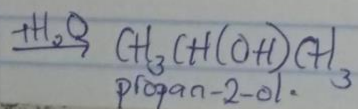 +H₂O → CH₃CH(OH)CH₃
propan-2-ol.